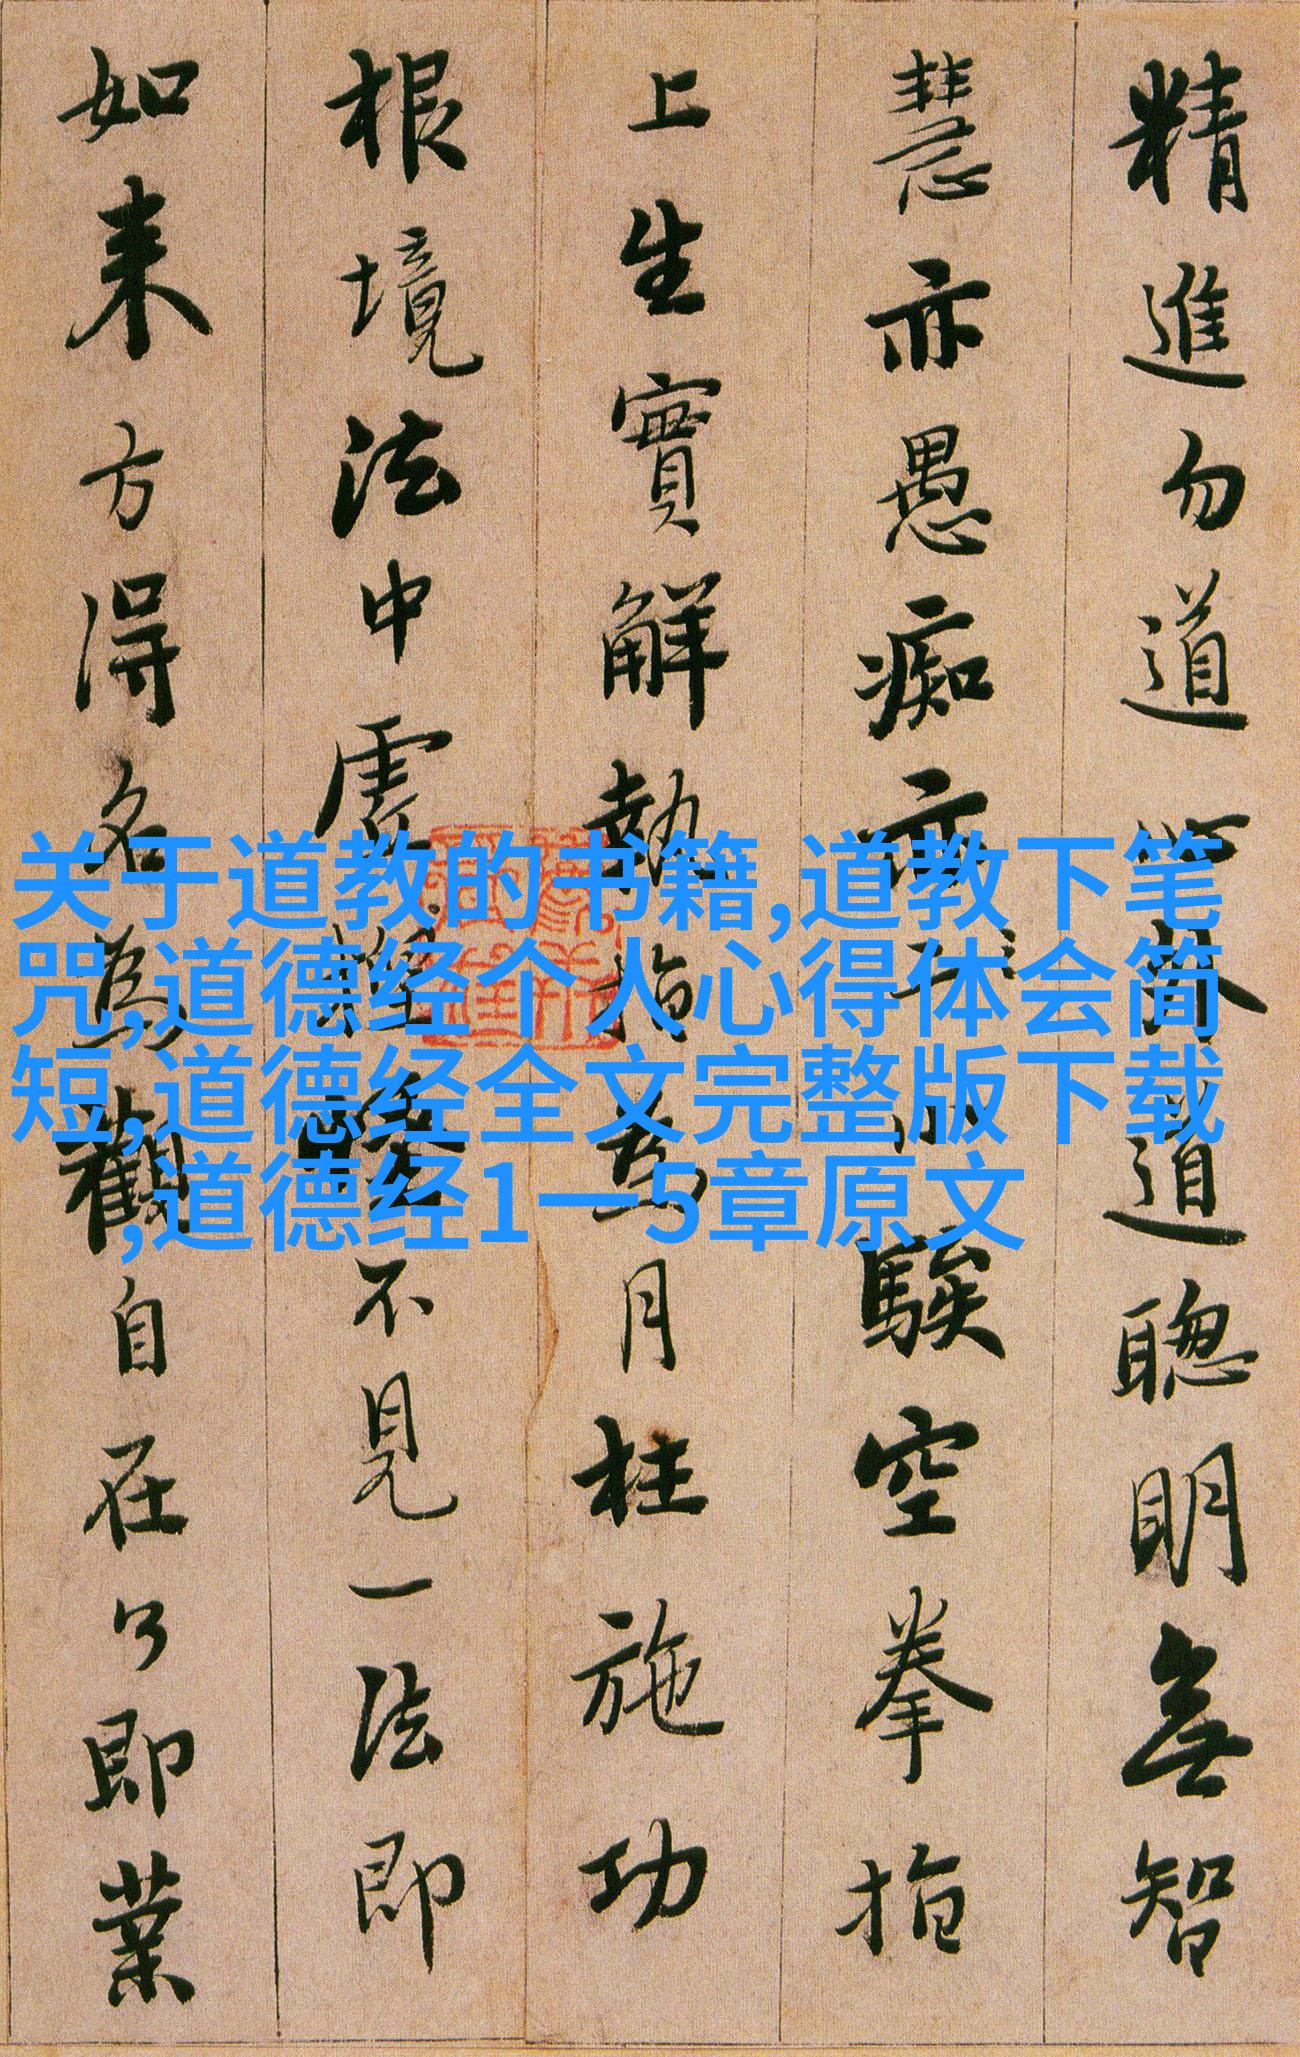 精進勿道心外道聰明無智
慧亦愚痴亦小騃空拳指
上生實解執指為月枉施功
根境法中虛捏怪不見一法即
如来方得名為觀自在了即業
关于道教的书籍,道教下笔
咒,道德经个人心得体会简
短,道德经全文完整版下载
,道德经1—5章原文